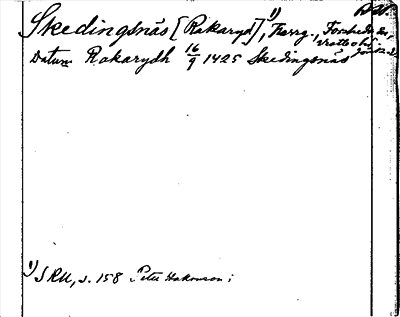 Skedingsnäs [Rakaryd] 1), Herrg., Forsheda sn,
Västbo hd
Datum Rakarydh 16/9 1425 Skedingsnäs
1) SRM, s. 158 Peter Hakonson;